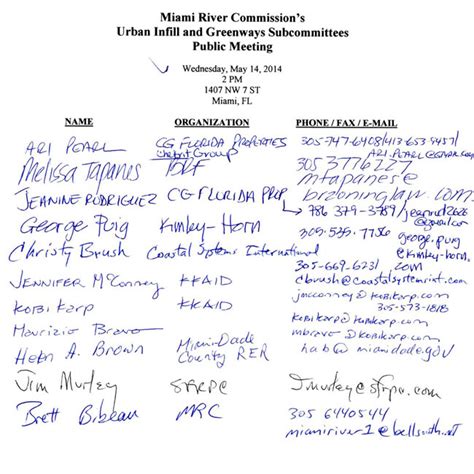 Miami River Commission's
Urban Infill and Greenways Subcommittees
Public Meeting
Wednesday, May 14, 2014
2 PM
1407 NW 7 ST
Miami, FL
NAME ORGANIZATION PHONE / FAX / E-MAIL
ARI PEARL CG FLORIDA PROPERTIES 305-747-6408/413-653-9457/
Group ARI.PEARL@
Melissa Tapanes 305 3776227
mtapanes@
brzoninglaw.com
JEANINE RODRIGUEZ CG FLORIDA PROP 986 379-3989/
George Puig Kimley-Horn 305-535-7756 george.puig
@kimley-horn.
com
Christy Brush Coastal Systems International 305-669-6231
cbrush@coastalsystemsint.com
JENNIFER McConney KKAID jmcconney@kobikarp.com
305-573-1818
KOBI Karp KKAID Kobikarp@kobikarp.com
Maurizio Bravo mbravo@kobikarp.com
Helen A. Brown Miami-Dade hab@miamidade.gov
County RER
Jim Murley SFRPC Jmurley@sfrpc.com
Brett Bibeau MRC 305 6440544
miamiriver1@bellsouth.net